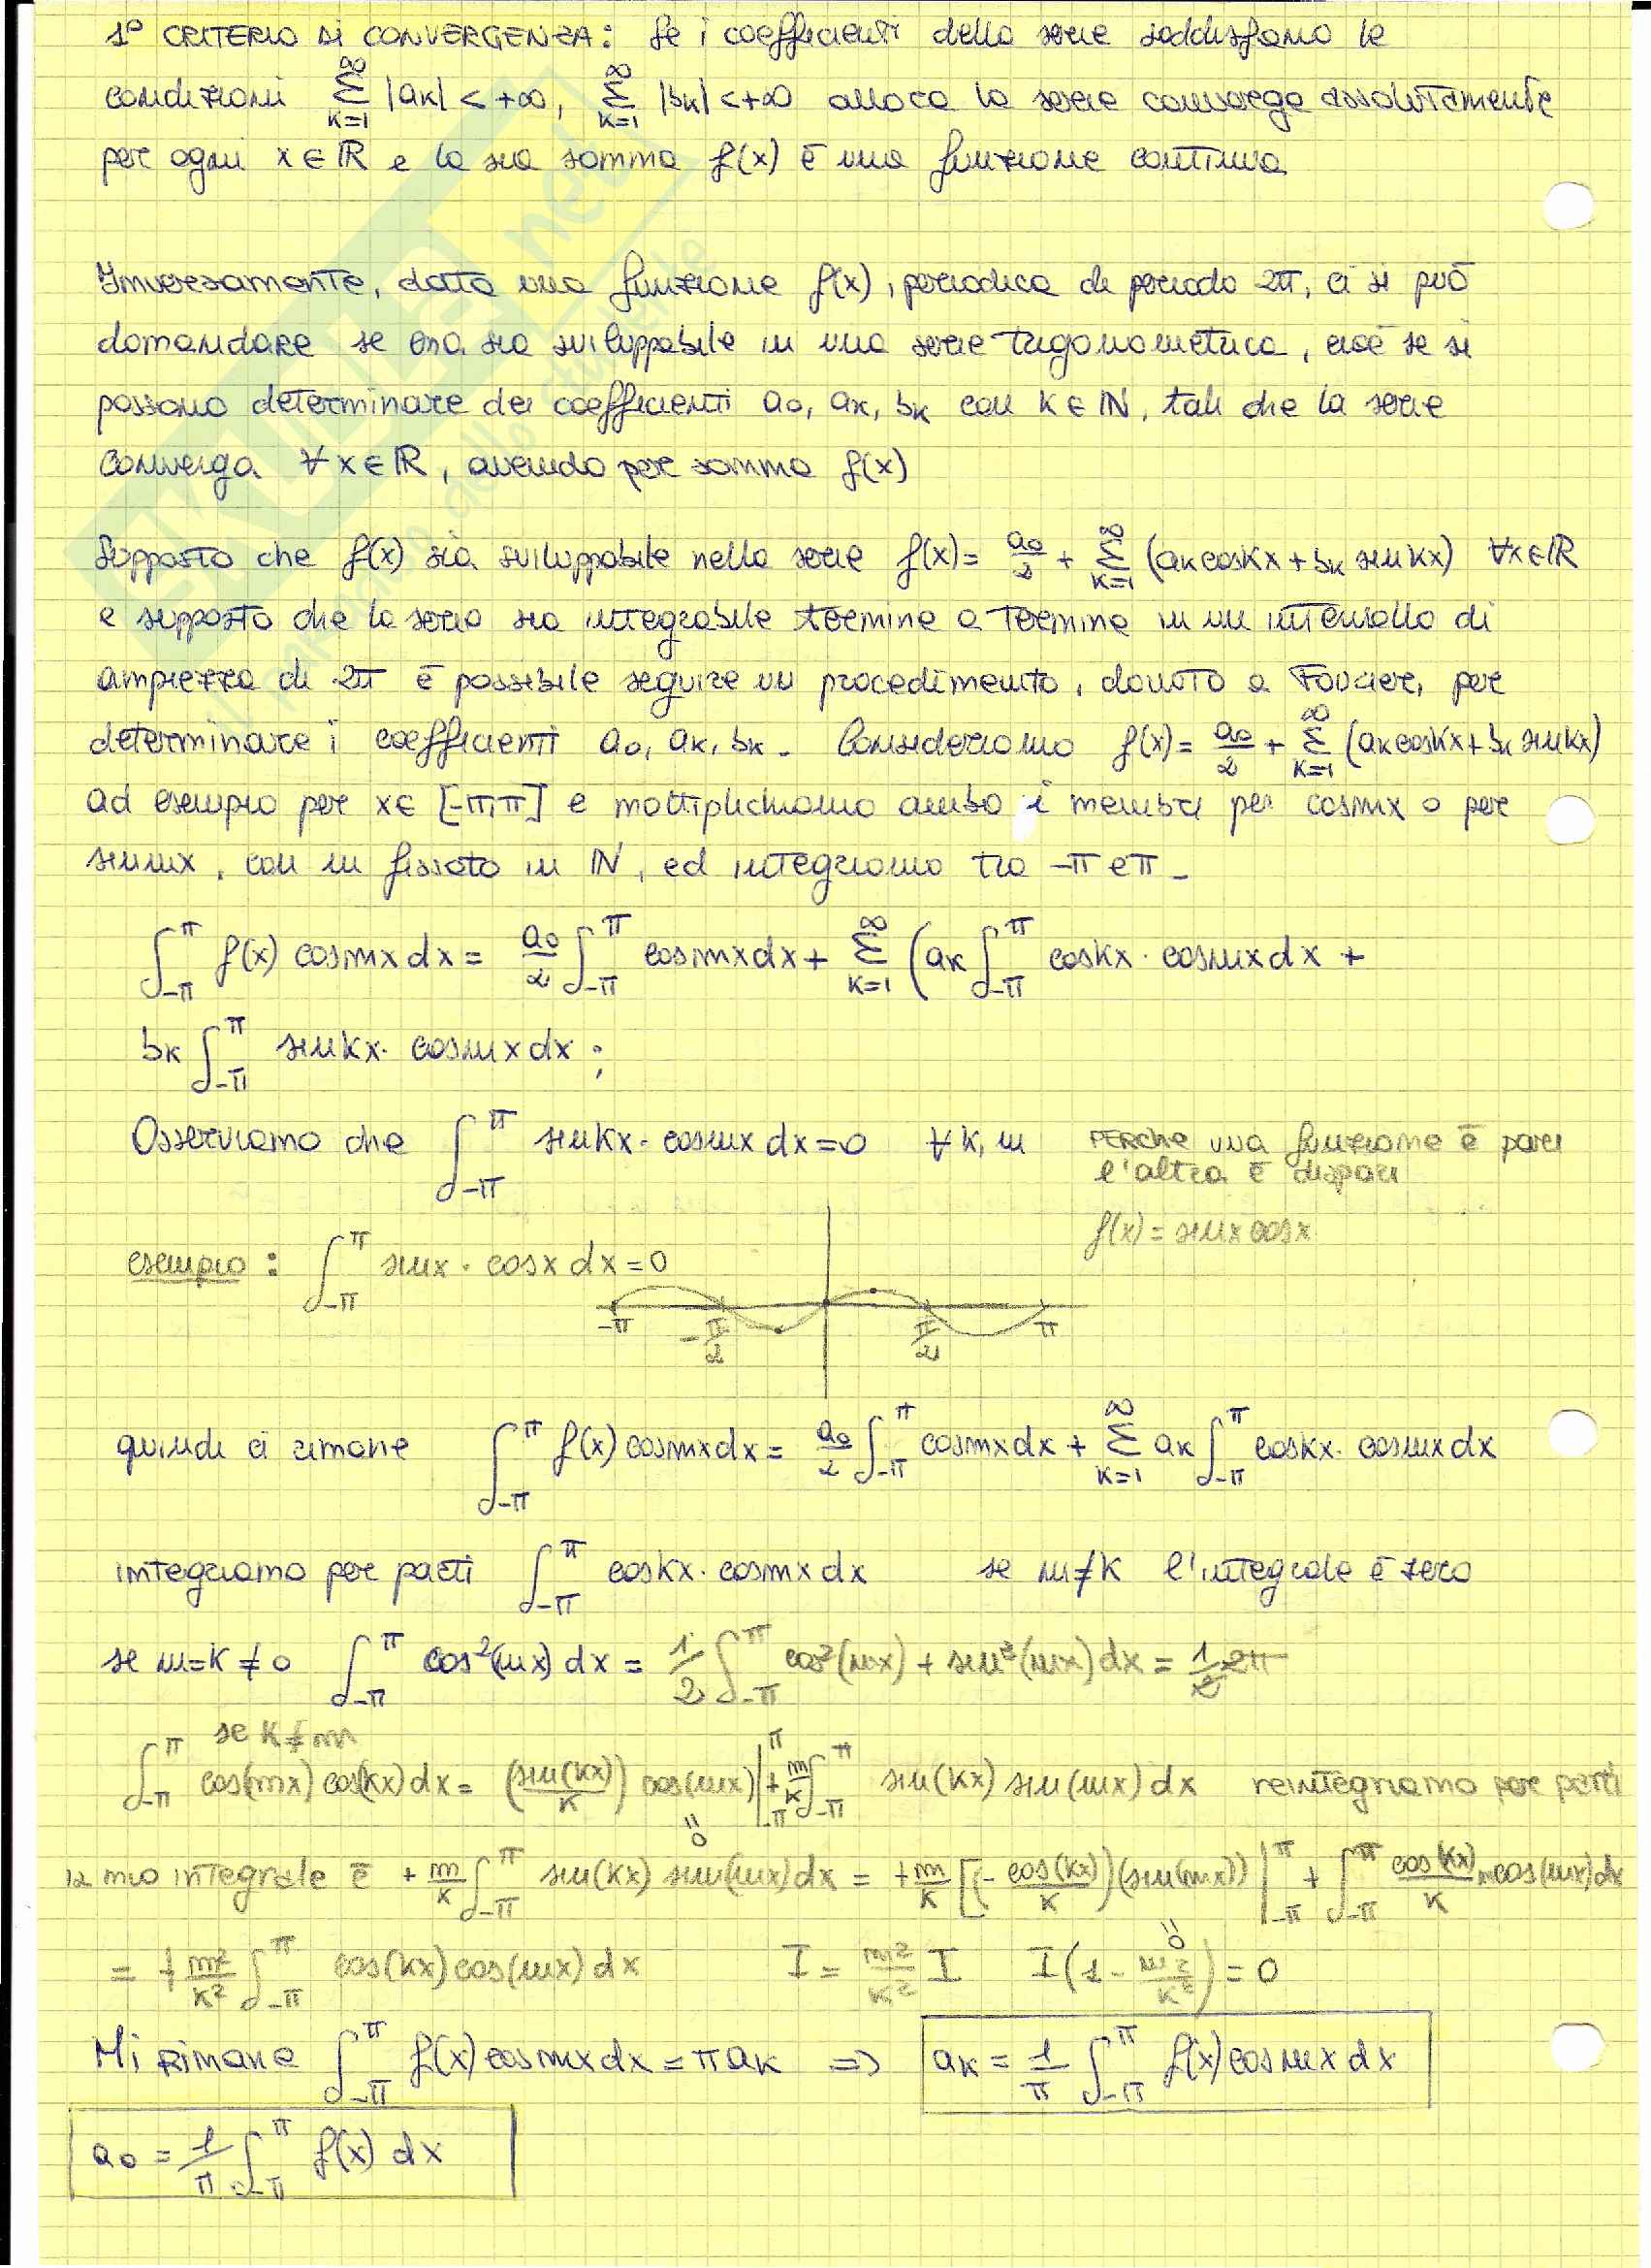 1° CRITERIO DI CONVERGENZA: Se i coefficienti della serie soddisfano le
condizioni ∞Σk=1 |ak| < +∞, ∞Σk=1 |bk| < +∞ allora la serie converge assolutamente
per ogni x ∈ ℝ e la sua somma f(x) è una funzione continua
Inversamente, data una funzione f(x), periodica di periodo 2π, ci si può
domandare se essa sia sviluppabile in una serie trigonometrica, cioè se si
possono determinare dei coefficienti a0, ak, bk con k ∈ ℕ, tali che la serie
converga ∀ x ∈ ℝ, avendo per somma f(x)
Supposto che f(x) sia sviluppabile nella serie f(x) = a0/2 + ∞Σk=1 (ak coskx + bk sinkx) ∀x∈ℝ
e supposto che la serie sia integrabile termine a termine in un intervallo di
ampiezza di 2π è possibile seguire un procedimento, dovuto a Fourier, per
determinare i coefficienti a0, ak, bk. Consideriamo f(x) = a0/2 + ∞Σk=1 (ak coskx + bk sinkx)
ad esempio per x ∈ [-π,π] e moltiplichiamo ambo i membri per cosmx o per
sinmx, con m fissato in ℕ, ed integriamo tra -π e π.
∫-π^π f(x) cosmx dx = a0/2 ∫-π^π cosmx dx + ∞Σk=1 (ak ∫-π^π coskx · cosmx dx +
bk ∫-π^π sinkx · cosmx dx ;
Osserviamo che ∫-π^π sinkx · cosmx dx = 0 ∀ k, m PERChe una funzione è pari
l'altra è dispari
f(x) = sinx cosx
esempio : ∫-π^π sinx · cosx dx = 0
-π -π/2 π/2 π
quindi ci rimane ∫-π^π f(x) cosmx dx = a0/2 ∫-π^π cosmx dx + ∞Σk=1 ak ∫-π^π coskx · cosmx dx
integriamo per parti ∫-π^π coskx · cosmx dx se m≠k l'integrale è zero
se m=k≠0 ∫-π^π cos²(mx) dx = 1/2 ∫-π^π cos²(mx) + sin²(mx) dx = 1/2 2π
se k≠m
∫-π^π cos(mx) cos(kx) dx = (sin(kx)/k) cos(mx) |-π^π + m/k ∫-π^π sin(kx) sin(mx) dx reintegriamo per parti
= 0
il mio integrale è + m/k ∫-π^π sin(kx) sin(mx) dx = + m/k [(- cos(kx)/k)(sin(mx)) |-π^π + ∫-π^π cos(kx)/k m cos(mx) dx
= 0
= + m²/k² ∫-π^π cos(kx) cos(mx) dx I = m²/k² I I (1 - m²/k²) = 0
Mi rimane ∫-π^π f(x) cosmx dx = π ak ⇒ ak = 1/π ∫-π^π f(x) cosmx dx
a0 = 1/π ∫-π^π f(x) dx